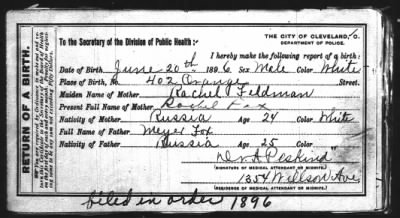 THE CITY OF CLEVELAND, O.
DEPARTMENT OF POLICE.
To the Secretary of the Division of Public Health:
I hereby make the following report of a birth:
Date of Birth June 20th 1896 Sex Male Color White
Place of Birth, No. 402 Orange Street.
Maiden Name of Mother Rachel Feldman
Present Full Name of Mother Rachel Fox
Nativity of Mother Russia Age 24 Color White
Full Name of Father Meyer Fox
Nativity of Father Russia Age 25 Color
Dr. A. Peskind
(SIGNATURE OF MEDICAL ATTENDANT OR MIDWIFE.)
1354 Willson Ave
(RESIDENCE OF MEDICAL ATTENDANT OR MIDWIFE.)
filed in order 1896
RETURN OF A BIRTH.